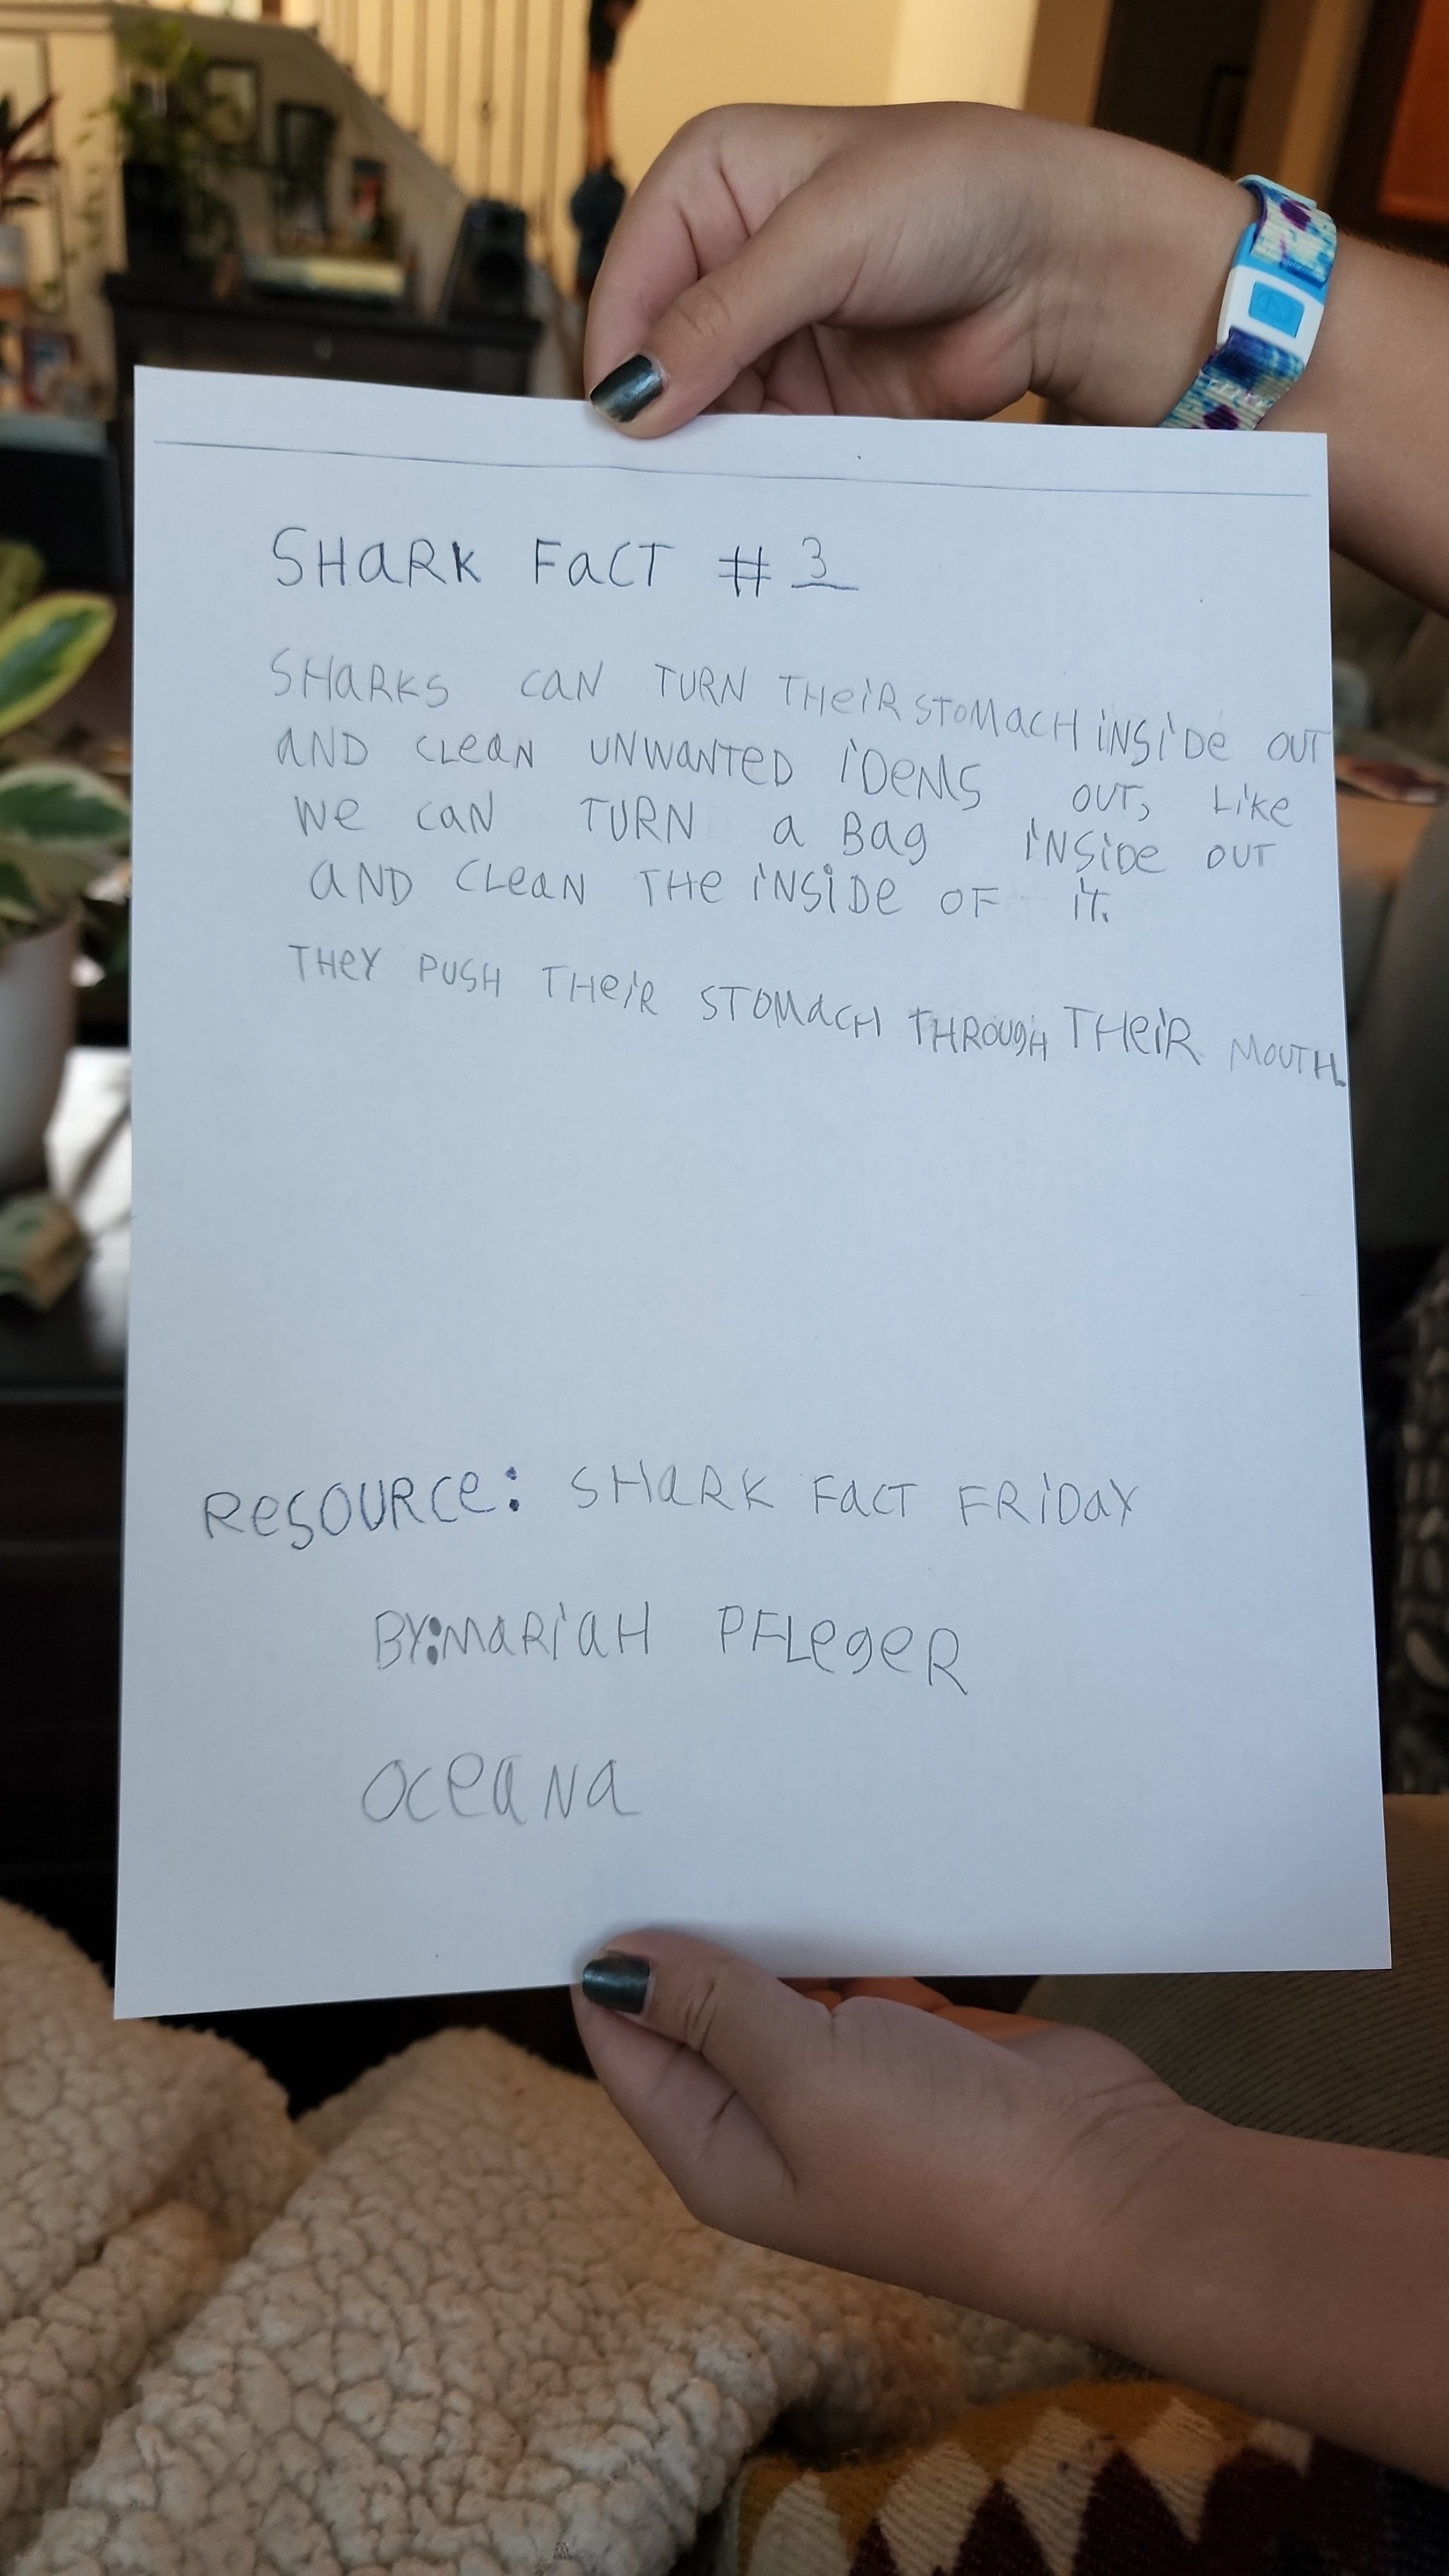 SHaRK FaCT # 3
SHaRKS CaN TURN THeiR STOMaCH iNSiDe OUT
aND CLeaN UNWaNTeD iDeMS OUT, Like
We CaN TURN a Bag iNSiDe OUT
aND CLeaN THe iNSiDe OF iT.
THeY PUSH THeiR STOMaCH THROUgH THeiR MOUTH.
ReSOURCe: SHaRK FaCT FRiDaY
BY:MaRiaH PFLegeR
OCeaNa